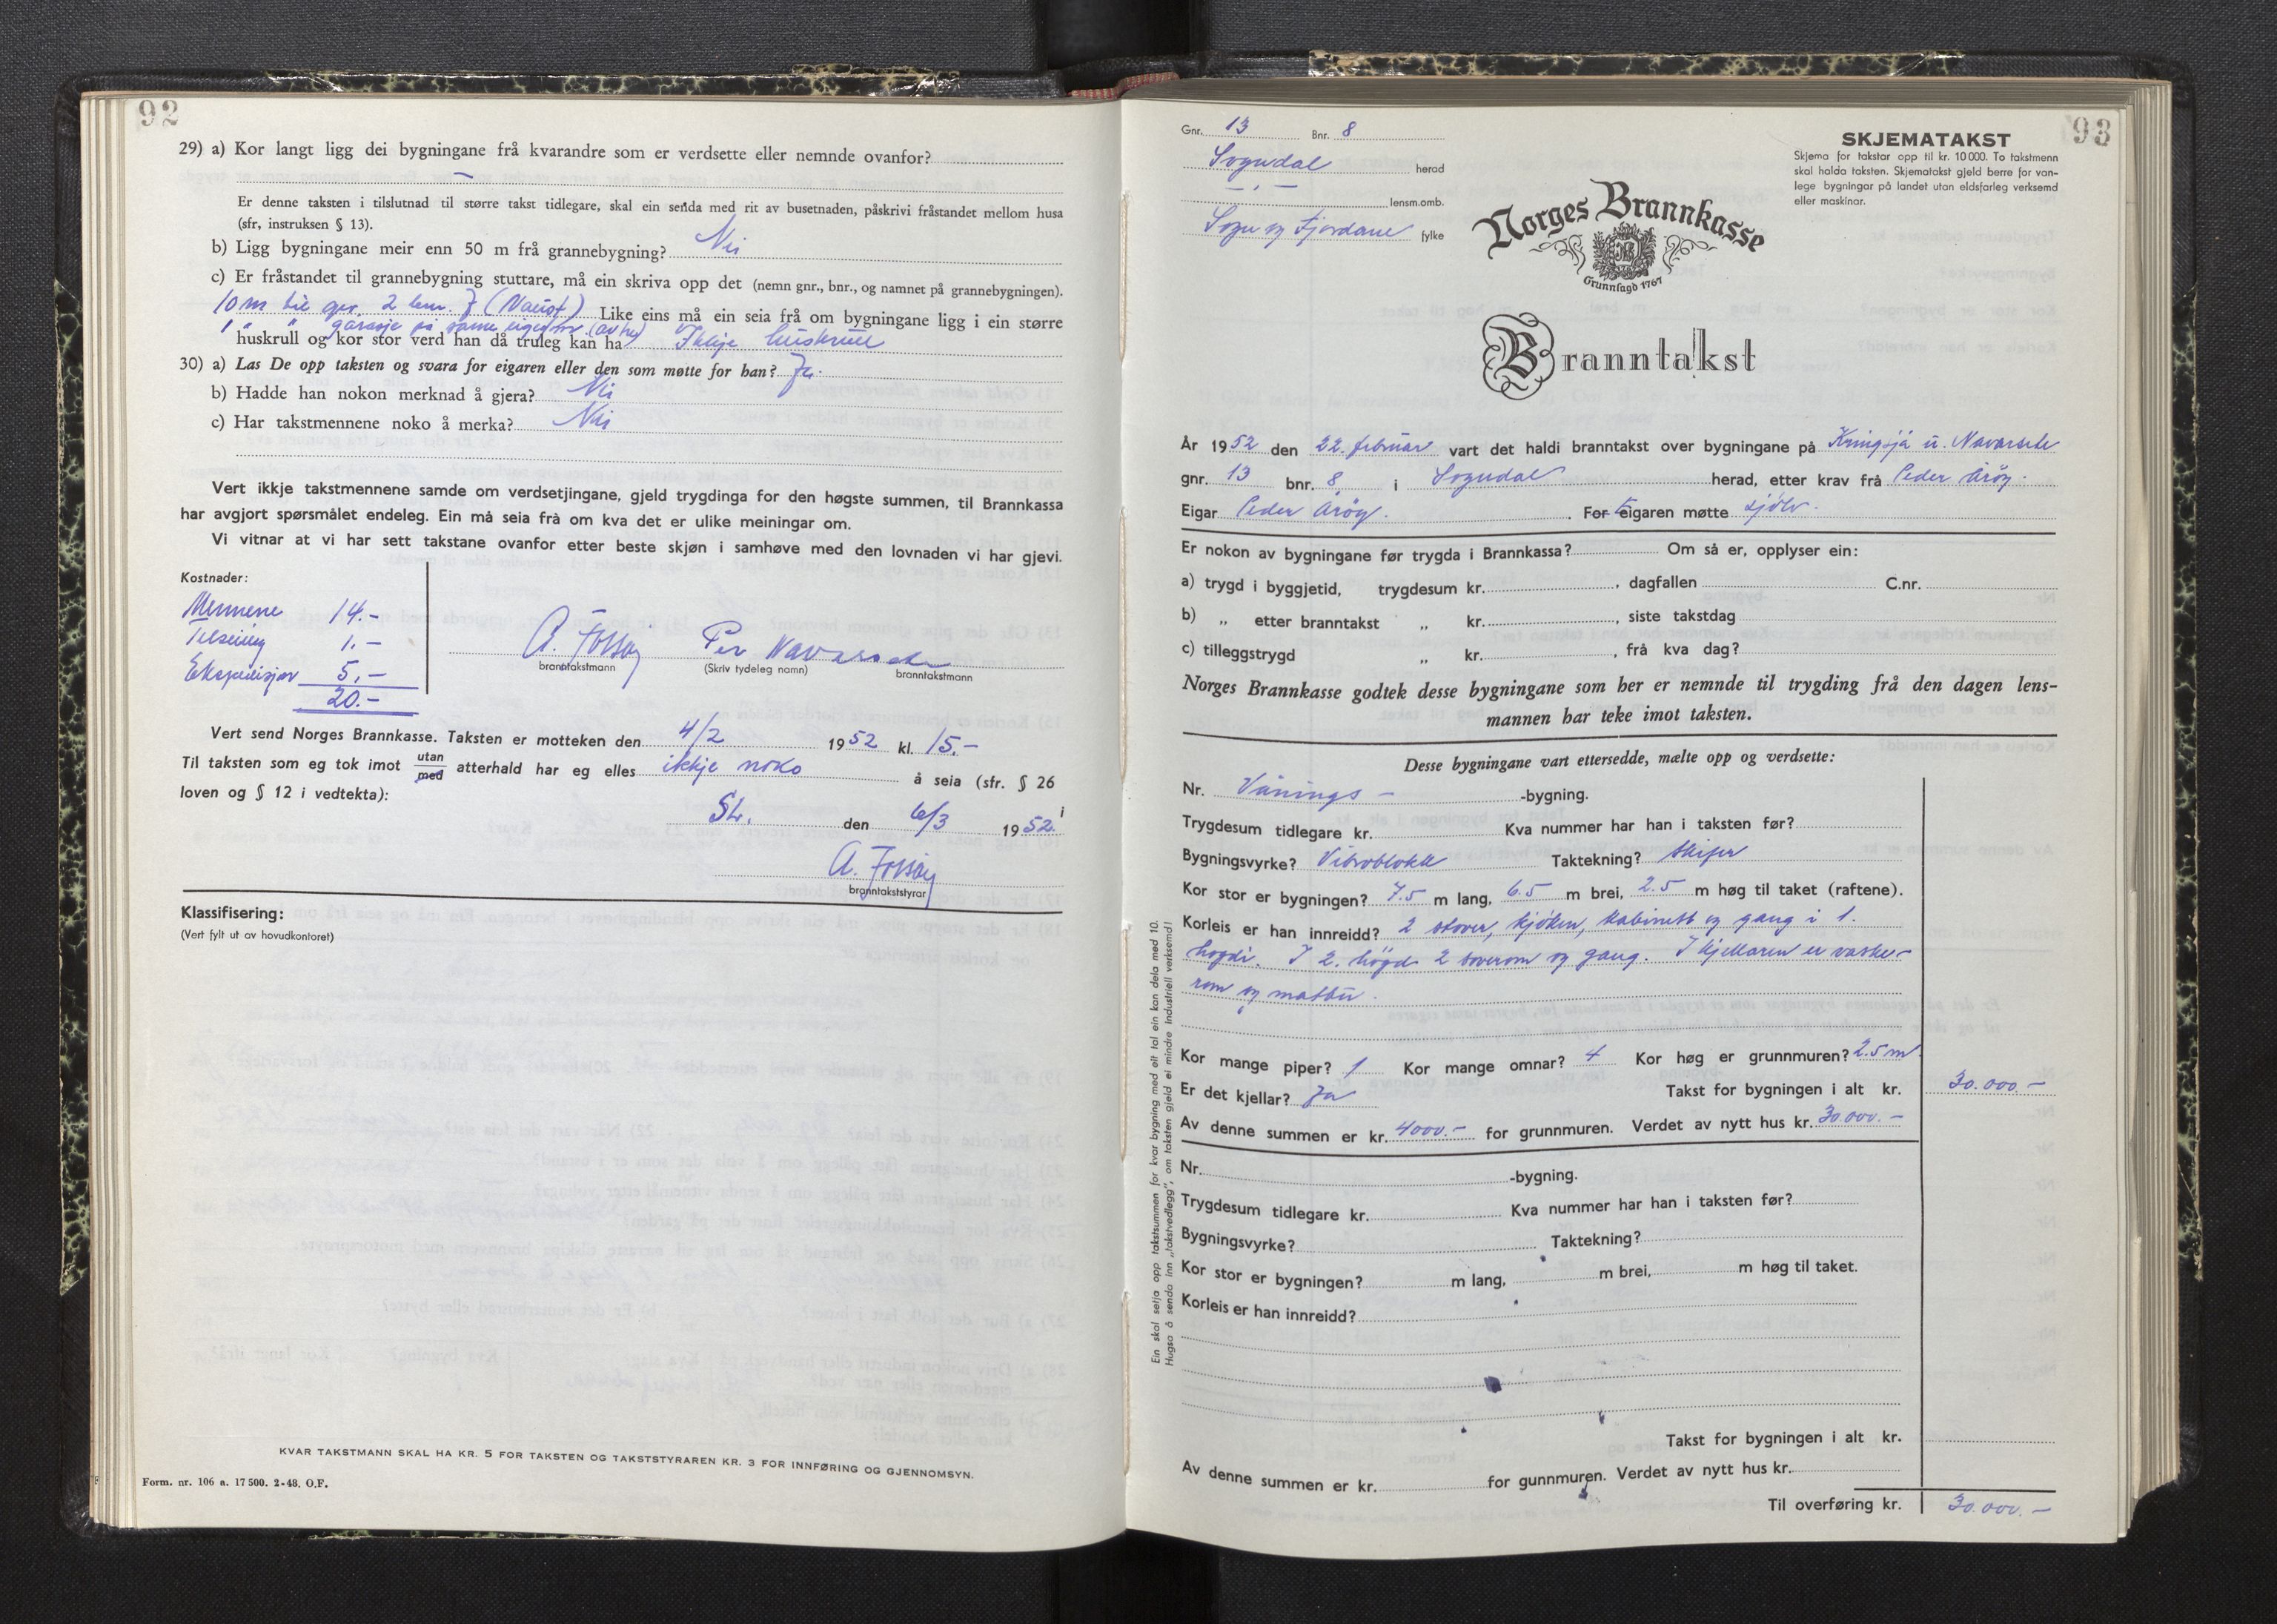 92
29) a) Kor langt ligg dei bygningane frå kvarandre som er verdsette eller nemnde ovanfor?
—
Er denne taksten i tilslutnad til større takst tidlegare, skal ein senda med rit av busetnaden, påskrivi fråstandet mellom husa
(sfr, instruksen § 13).
b) Ligg bygningane meir enn 50 m frå grannebygning? Nei
c) Er fråstandet til grannebygning stuttare, må ein skriva opp det (nemn gnr., bnr., og namnet på grannebygningen).
10 m til gnr. 2 bnr. 7 (Naust) Like eins må ein seia frå om bygningane ligg i ein større
1 " " garasje på same eigedom
huskrull og kor stor verd han då truleg kan ha Ikkje huskrull
30) a) Las De opp taksten og svara for eigaren eller den som møtte for han? Ja.
b) Hadde han nokon merknad å gjera? Nei
c) Har takstmennene noko å merka? Nei
Vert ikkje takstmennene samde om verdsetjingane, gjeld trygdinga for den høgste summen, til Brannkassa
har avgjort spørsmålet endeleg. Ein må seia frå om kva det er ulike meiningar om.
Vi vitnar at vi har sett takstane ovanfor etter beste skjøn i samhøve med den lovnaden vi har gjevi.
Kostnader:
Mennene 14.-
Tilseiing 1.-
Ekspedisjon 5.-
20.-
A. Fossøy Per Navarsete
branntakstmann (Skriv tydeleg namn) branntakstmann
Vert send Norges Brannkasse. Taksten er motteken den 4/2 1952 kl. 15.-
Til taksten som eg tok imot utan/med atterhald har eg elles ikkje noko å seia (sfr. § 26 i
loven og § 12 i vedtekta):
den 6/3 1952.
A. Fossøy
branntakststyrar
Klassifisering:
(Vert fylt ut av hovudkontoret)
KVAR TAKSTMANN SKAL HA KR. 5 FOR TAKSTEN OG TAKSTSTYRAREN KR. 3 FOR INNFØRING OG GJENNOMSYN.
Form. nr. 106 a. 17 500. 2-48. O.F.
93
Gnr. 13 Bnr. 8
Sogndal herad
— " — lensm.omb.
Sogn og Fjordane fylke
SKJEMATAKST
Skjema for takstar opp til kr. 10 000. To takstmenn
skal halda taksten. Skjematakst gjeld berre for van-
lege bygningar på landet utan eldsfarleg verksemd
eller maskinar.
Norges Brannkasse
Grunnlagd 1767
Branntakst
År 1952 den 22. februar vart det haldi branntakst over bygningane på Kringsjå u. Navarsete
gnr. 13 bnr. 8 i Sogndal herad, etter krav frå Peder Årøy.
Eigar Peder Årøy. For Eigaren møtte sjølv.
Er nokon av bygningane før trygda i Brannkassa? Om så er, opplyser ein:
a) trygd i byggjetid, trygdesum kr. , dagfallen C.nr.
b) „ etter branntakst „ kr. , siste takstdag
c) tilleggstrygd „ kr. , frå kva dag?
Norges Brannkasse godtek desse bygningane som her er nemnde til trygding frå den dagen lens-
mannen har teke imot taksten.
Desse bygningane vart ettersedde, mælte opp og verdsette:
Nr. Vånings - -bygning.
Trygdesum tidlegare kr. Kva nummer har han i taksten før?
Bygningsvyrke? Vibroblokk Taktekning? Skifer
Kor stor er bygningen? 7.5 m lang, 6.5 m brei, 2.5 m høg til taket (raftene).
Korleis er han innreidd? 2 stover, kjøken, kabinett og gang i 1.
høgdi. I 2. høgd 2 soverom og gang. I kjellaren er vaske-
rom og matbu.
Kor mange piper? 1 Kor mange omnar? 4 Kor høg er grunnmuren? 2.5 m.
Er det kjellar? Ja Takst for bygningen i alt kr. 30.000.—
Av denne summen er kr. 4000.- for grunnmuren. Verdet av nytt hus kr. 30.000.-
Nr. -bygning.
Trygdesum tidlegare kr. Kva nummer har han i taksten før?
Bygningsvyrke? Taktekning?
Kor stor er bygningen? m lang, m brei, m høg til taket.
Korleis er han innreidd?
Takst for bygningen i alt kr.
Av denne summen er kr. for gunnmuren. Verdet av nytt hus kr.
Til overføring kr. 30.000.—
Ein skal setja opp takstsummen for kvar bygning med eit tal ein kan dela med 10.
Hugsa å senda inn „takstvedlegg", om taksten gjeld ei mindre industriell verksemd!